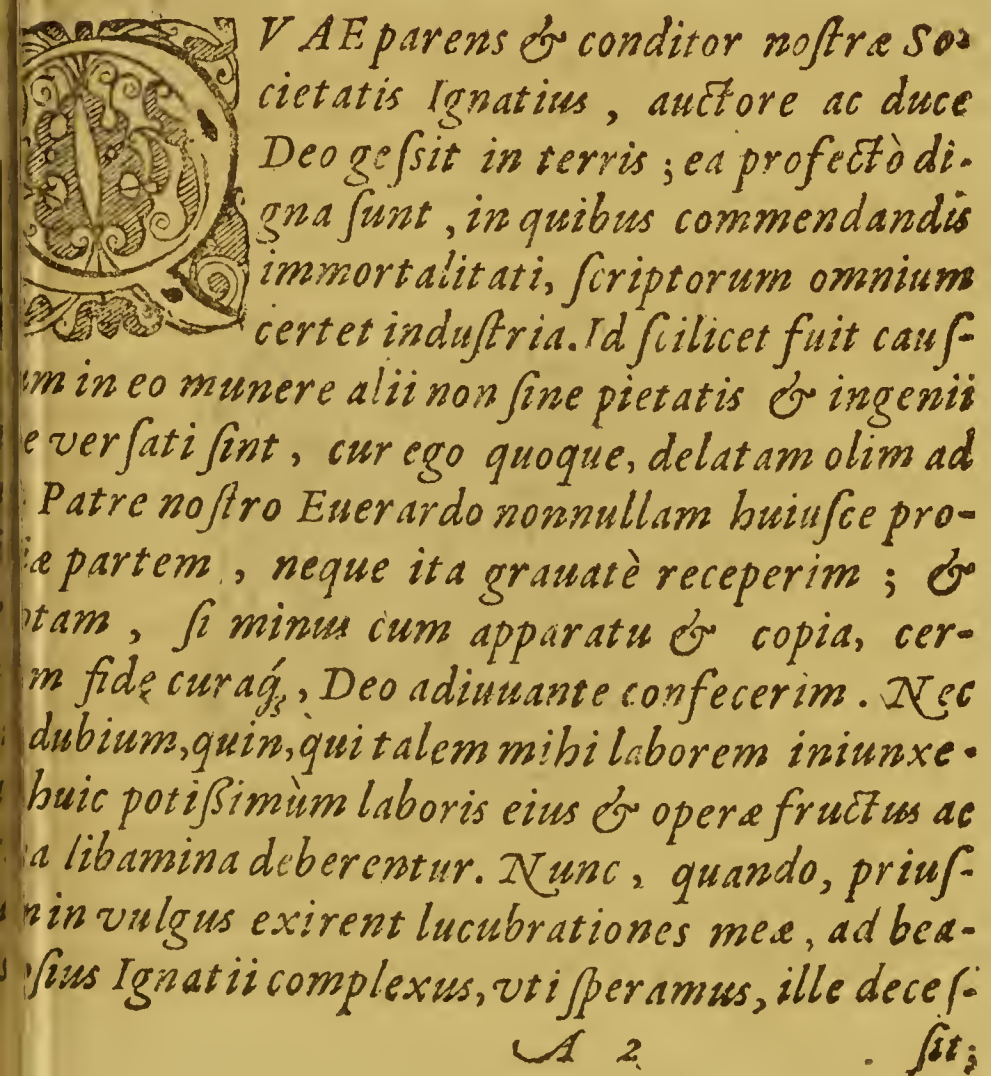 QVAE parens & conditor noſtræ So-
cietatis Ignatius, auctore ac duce
Deo geſsit in terris; ea profectò di-
gna ſunt, in quibus commendandis
immortalitati, ſcriptorum omnium
certet induſtria. Id ſcilicet fuit cauſ-
in eo munere alii non ſine pietatis & ingenii
verſati ſint, cur ego quoque, delatam olim ad
Patre noſtro Euerardo nonnullam huiuſce pro-
partem, neque ita grauatè receperim; &
ſi minus cum apparatu & copia, cer-
fide curaq́;, Deo adiuuante confecerim. Nec
dubium, quin, qui talem mihi laborem iniunxe-
huic potiſsimùm laboris eius & operæ fructus ac
libamina deberentur. Nunc, quando, priuſ-
in vulgus exirent lucubrationes meæ, ad bea-
Ignatii complexus, vti ſperamus, ille deceſ-
A 2 ſit;